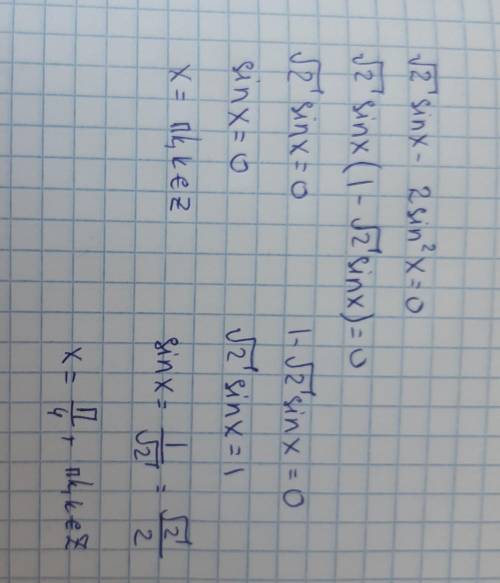 √2 sinx - 2sin²x = 0
√2 sinx(1 - √2 sinx) = 0
√2 sinx = 0
sinx = 0
x = πk, k ∈ Z
1 - √2 sinx = 0
√2 sinx = 1
sinx = 1/√2 = √2/2
x = π/4 + πk, k ∈ Z